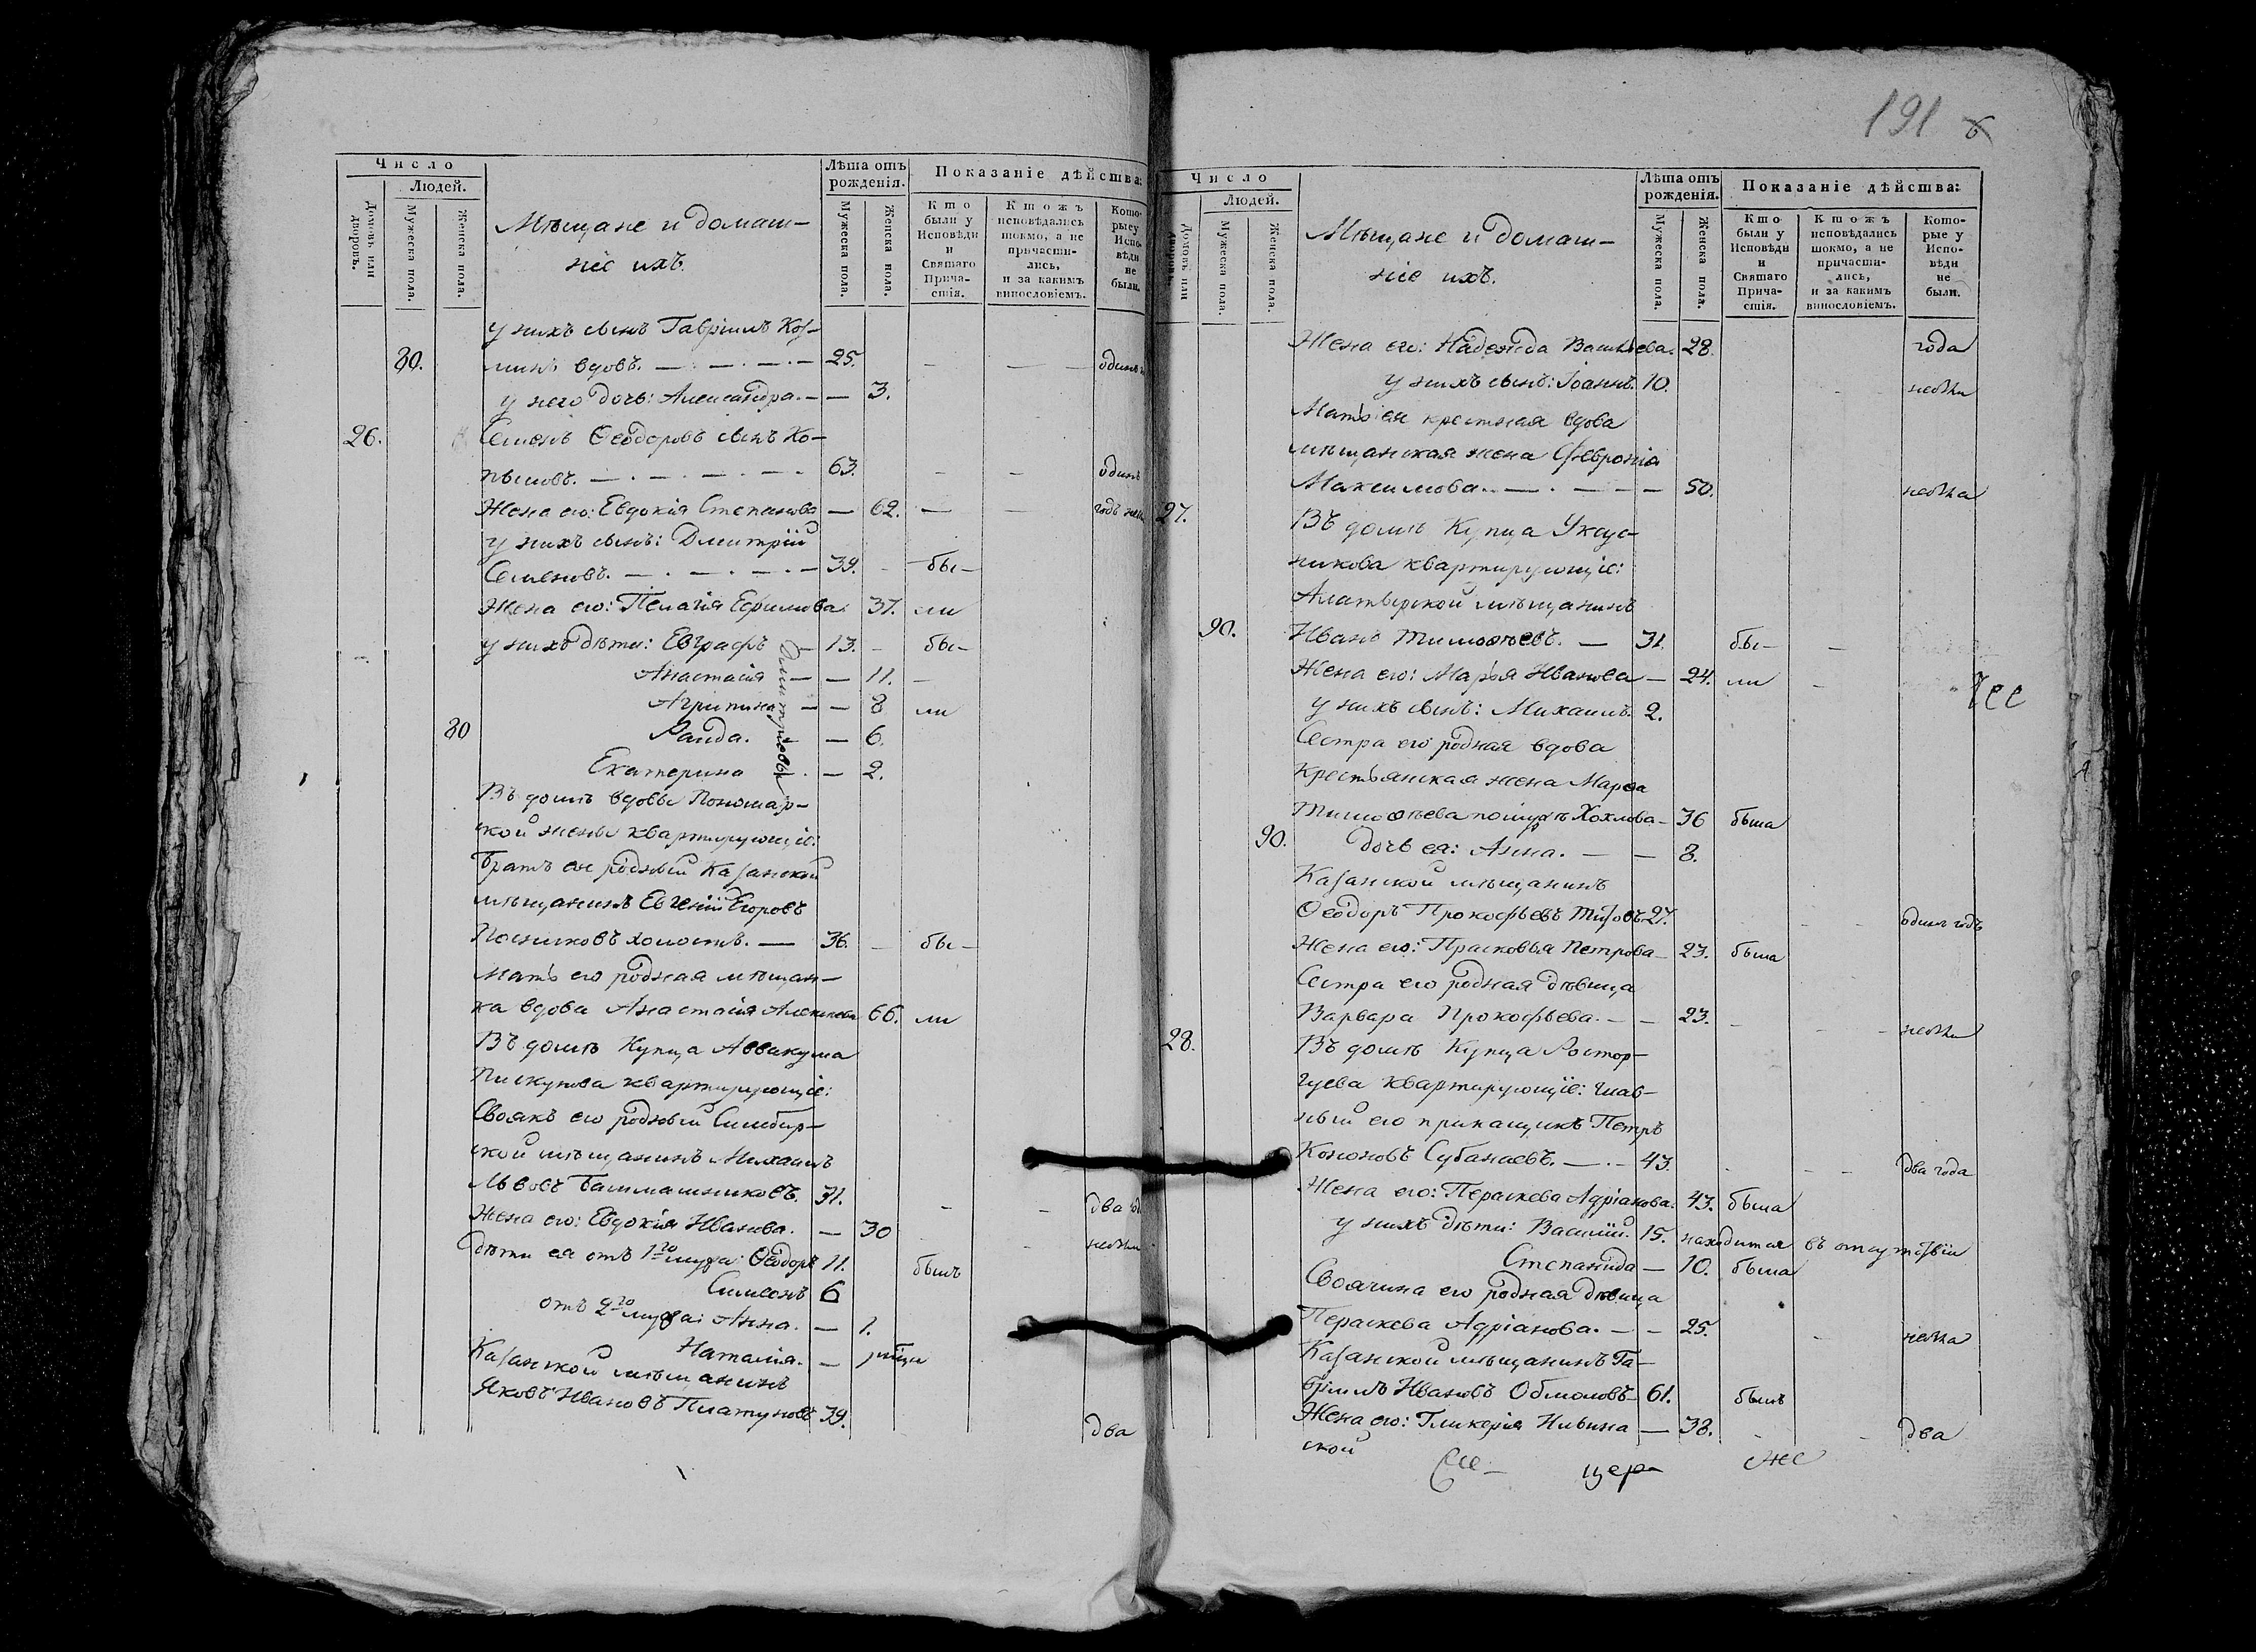 191
Число
Людей.
Домовъ или дворовъ.
Мужеска пола.
Женска пола.
Мѣщане и домаш-
ніе ихъ.
Лѣта отъ рожденія.
Мужеска пола.
Женска пола.
Показаніе дѣйства:
Кто были у Исповѣди и Святаго Прича-стія.
Ктожъ исповѣдались токмо, а не причасти-лись, и за какимъ винословіемъ.
Кото-рые у Испо-вѣди не были.
у нихъ сынъ Гавріилъ Коз-
80. минъ вдовъ. 25. одинъ
у него дочь: Александра. 3.
26. Семенъ Ѳеодоровъ сынъ Хо-
пыловъ. 63. одинъ
Жена его: Евдокія Степанова 62. годъ
у нихъ сынъ: Дмитрій
Семеновъ. 39. бы-
Жена его: Пелагія Ефимова. 37. ли
у нихъ дѣти: Евграфъ 13. бы-
Анастасія 11.
Агрипина 8 ли
80 Раида. 6.
Екатерина 2.
Дмитріовы
Въ домѣ вдовы Пономар-
ской жены квартирующіе:
Братъ ея родный Казанской
мѣщанинъ Евгеній Егоровъ
Посниковъ холостъ. 36. бы-
мать его родная мѣщан-
ка вдова Анастасія Алексѣева 66. ли
Въ домѣ Купца Аввакума
Пискунова квартирующіе:
Своякъ его родный Симбир-
ской мѣщанинъ Михаилъ
Львовъ Башмашниковъ. 31. два
Жена его: Евдокія Иванова. 30 небыли
дѣти ея отъ 1го мужа: Ѳеодоръ 11. былъ
Симеонъ 6
отъ 2го мужа: Анна. 1.
Наталія.
Казанской мѣщанинъ
Яковъ Ивановъ Платуновъ 39. два
Число
Людей.
Домовъ или дворовъ.
Мужеска пола.
Женска пола.
Мѣщане и домаш-
ніе ихъ.
Лѣта отъ рожденія.
Мужеска пола.
Женска пола.
Показаніе дѣйства:
Кто были у Исповѣди и Святаго Прича-стія.
Ктожъ исповѣдались токмо, а не причасти-лись, и за какимъ винословіемъ.
Кото-рые у Испо-вѣди не были.
Жена его: Надежда Васильева. 28. года
у нихъ сынъ: Іоаннъ. 10. небыли
Мать ея крестная вдова
мѣщанская жена Февронія
Максимова. 50. небыла
27. Въ домѣ Купца Уксус-
никова квартирующіе:
Алатырской мѣщанинъ
90. Иванъ Тимоѳеевъ. 31. бы-
Жена его: Марья Иванова 24. ли
у нихъ сынъ: Михаилъ. 2.
Сестра его родная вдова
крестьянская жена Марѳа
Тимоѳѣева помужѣ Хохлова 36 была
90. дочь ея: Анна. 8.
Казанской мѣщанинъ
Ѳеодоръ Прокофьевъ Тизовъ 27. одинъ годъ
Жена его: Прасковья Петрова 23. была
Сестра его родная дѣвица
Варвара Прокофьева. 23. небыли
28. Въ домѣ Купца Ростор-
гуева квартирующіе: глав-
ный его прикащикъ Петръ
Кононовъ Субанаевъ. 43. два года
Жена его: Параскева Адріанова. 43. была
у нихъ дѣти: Василій. 15. находится въ отсутствіи
Степанида 10. была
Своячина его родная дѣвица
Параскева Адріанова. 25. небыла
Казанской мѣщанинъ Га-
вріилъ Ивановъ Обмоловъ 61. былъ
Жена его: Гликерія Ильина 38. два
ской цер-